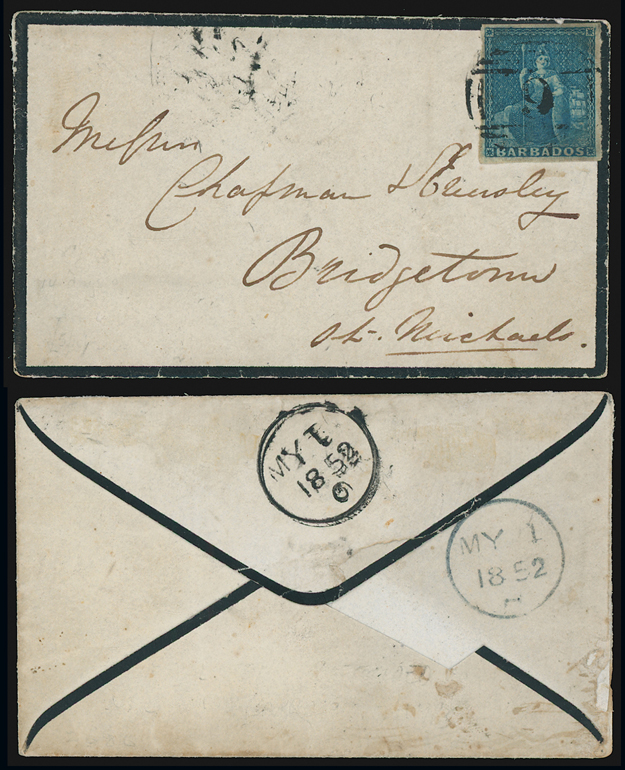 BARBADOS
9
Messrs
Chapman &
Bridgetown
St. Michaels.
MY 1
1852
9
MY 1
1852